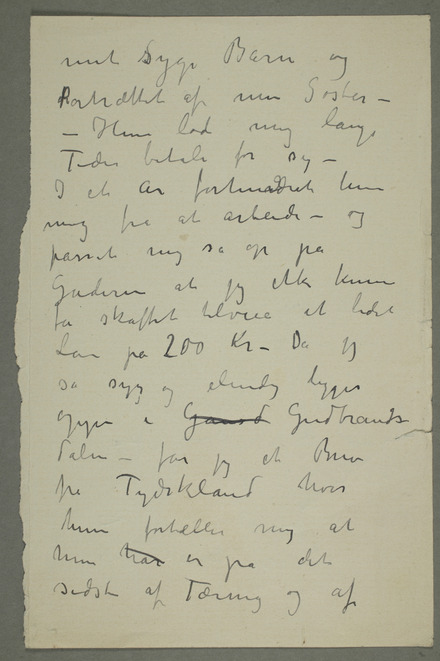 mit Syge Barn og
Portrættet af min Søster –
– Hun lod mig lange
Tider betale for sig –
I et År forhindret hun
mig fra at arbeide – og
passet mig så op på
Gaderne at jeg ikke kunde
få skaffet tilveie et lidet
Lån på 200 Kr – Da jeg
så syg og elendig ligger
oppe i Gausd Gudbrands
dalen – får jeg et Brev
fra Tydskland hvor
hun fortæller mig at
hun har er på det
sidste af Tæring og af